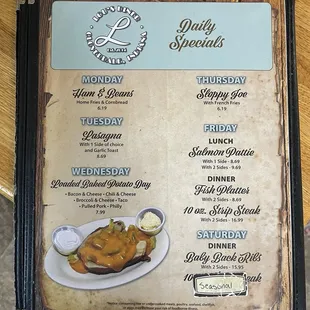 L
Daily
Specials
MONDAY
Ham & Beans
Home Fries & Cornbread
6.19
TUESDAY
Lasagna
With 1 Side of choice
and Garlic Toast
8.69
WEDNESDAY
Loaded Baked Potato Day
• Bacon & Cheese • Chili & Cheese
• Broccoli & Cheese • Taco
• Pulled Pork • Philly
7.99
THURSDAY
Sloppy Joe
With French Fries
6.19
FRIDAY
LUNCH
Salmon Pattie
With 1 Side - 8.69
With 2 Sides - 9.69
DINNER
Fish Platter
With 1 Side - 8.69
With 2 Sides - 9.69
10 oz. Strip Steak
With 2 Sides - 16.99
SATURDAY
DINNER
Baby Back Ribs
With 2 Sides - 15.95
Steak
Seasonal